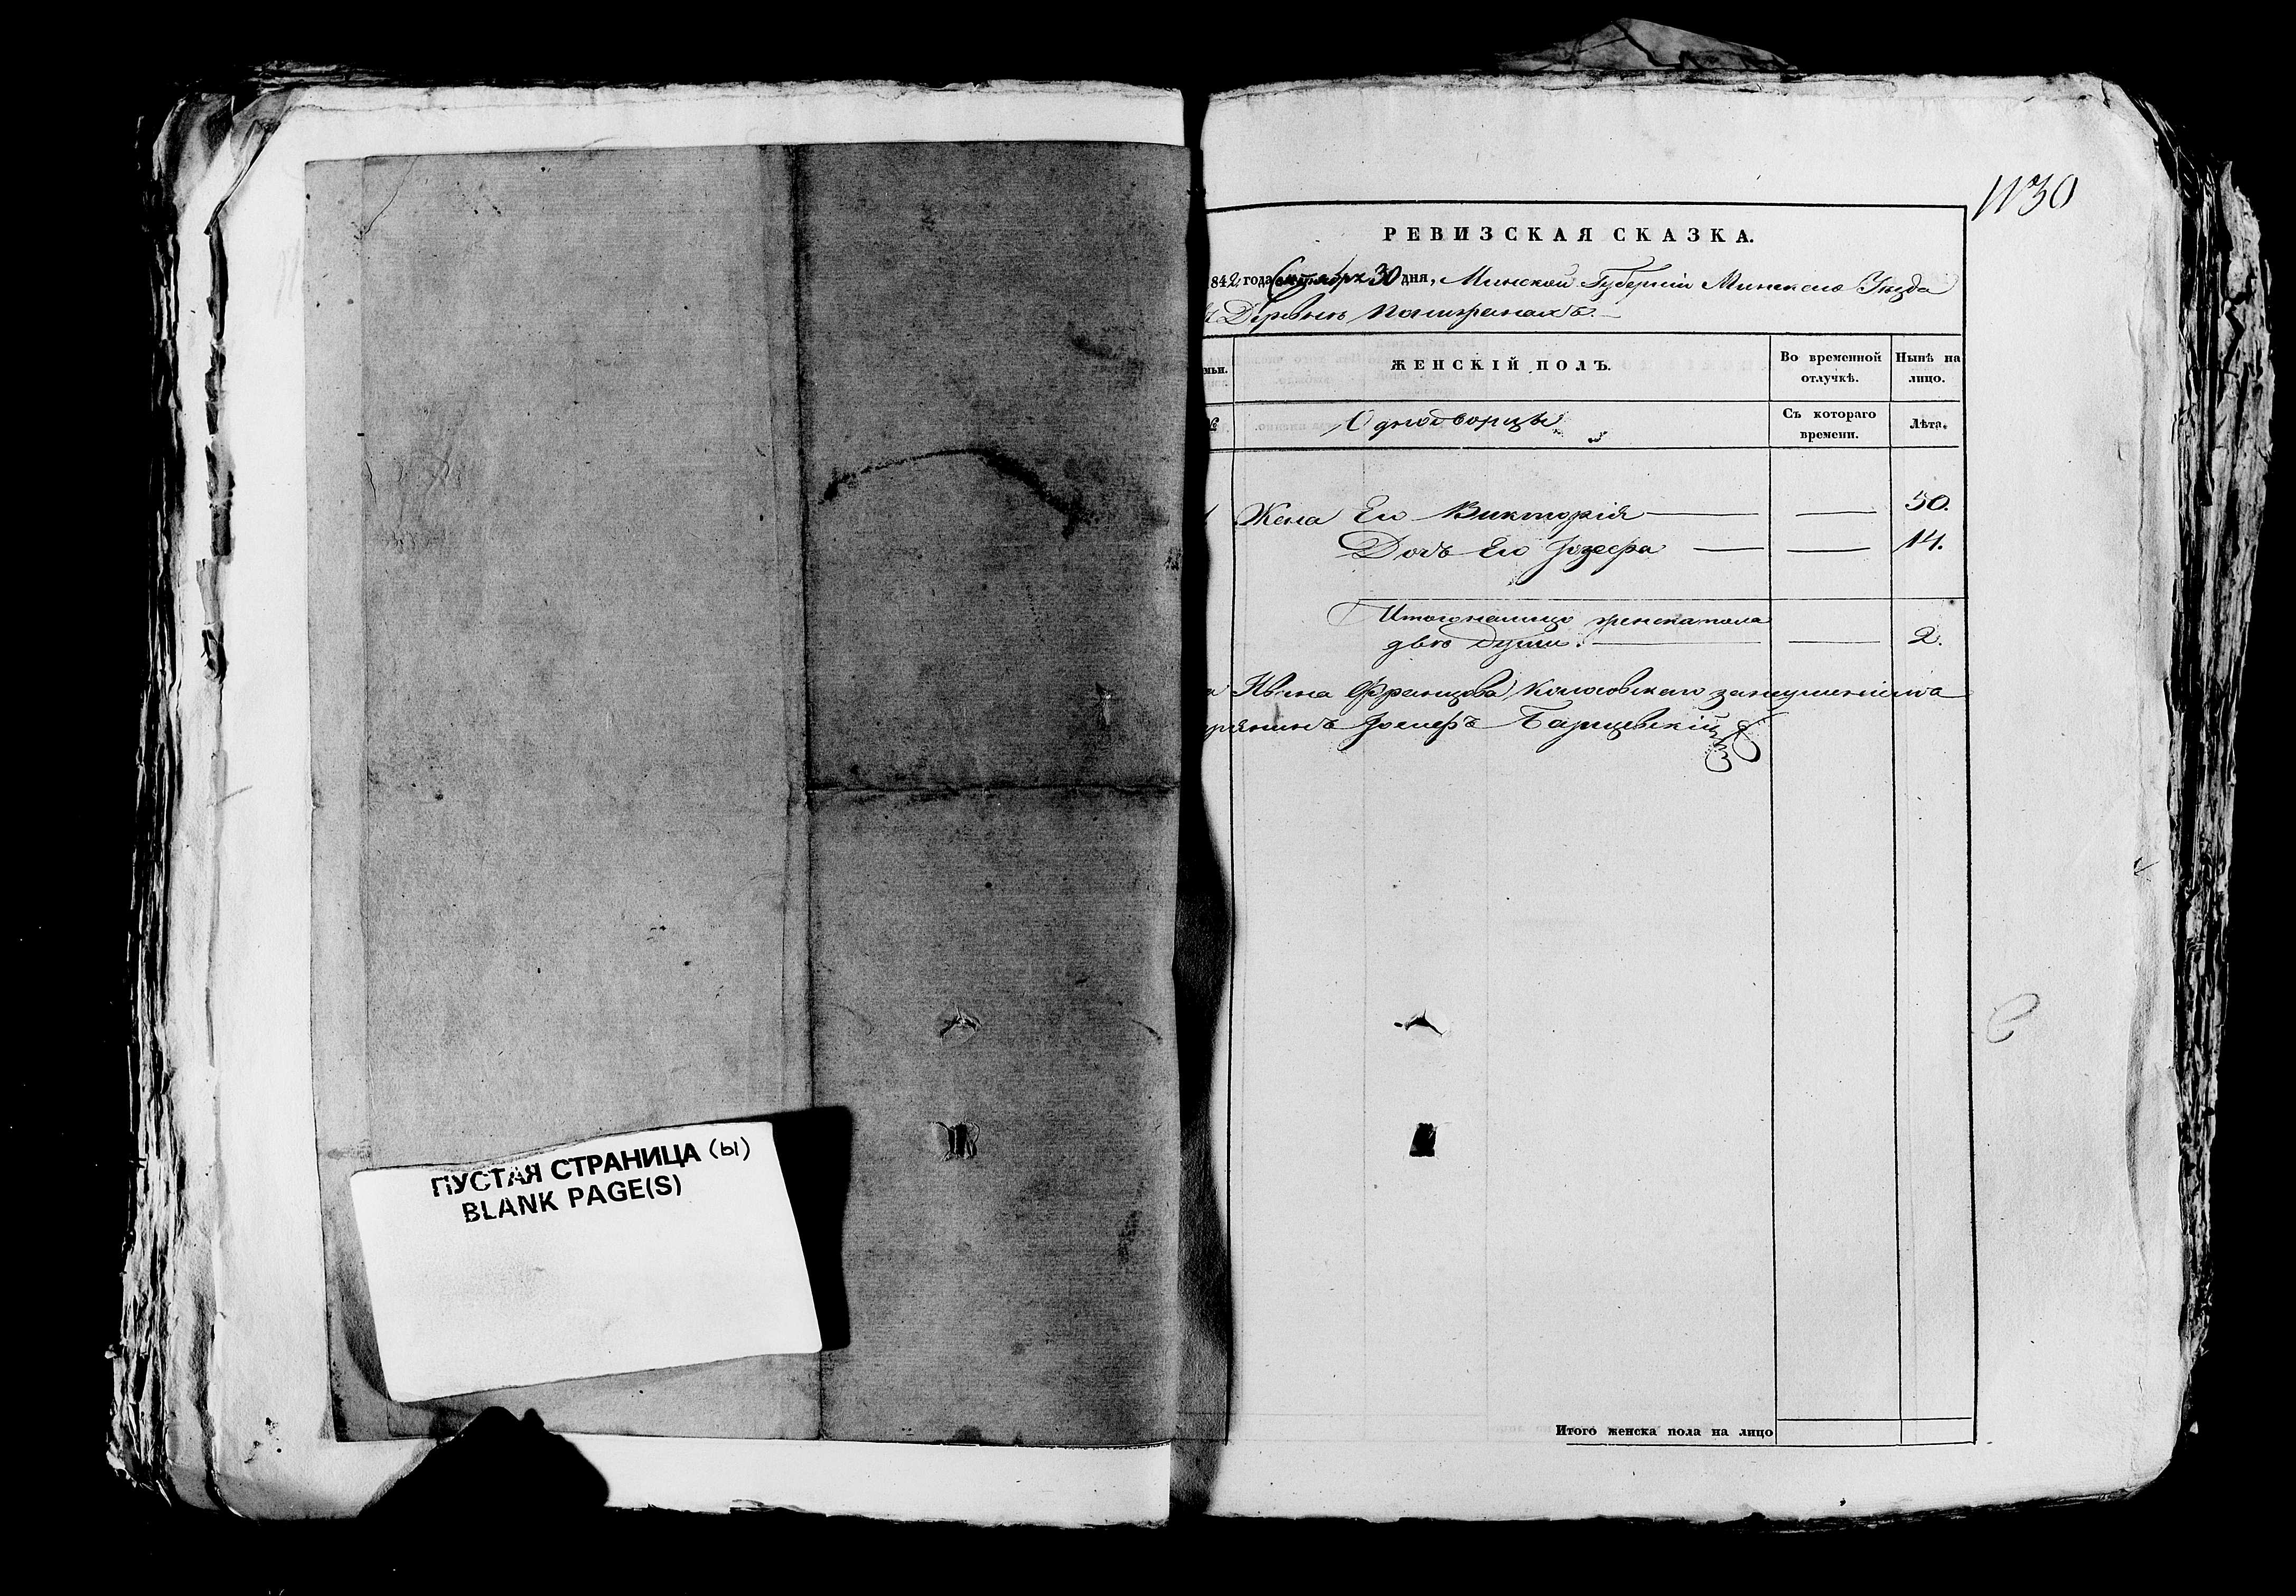 ПУСТАЯ СТРАНИЦА (ы)
BLANK PAGE(S)
1130
РЕВИЗСКАЯ СКАЗКА.
842 года Октября 30 дня, Минской Губерніи Минскаго Уѣзда
Деревнѣ
мьи. ЖЕНСКІЙ ПОЛЪ. Во временной отлучкѣ. Нынѣ на лицо.
Однодворцы Съ котораго времени. Лѣта.
Жена Его Викторія 50.
Дочь Его Јозефа 14.
Итого налицо женска пола
двѣ души. 2.
Ивана Францова
Јосифъ
Итого женска пола на лицо